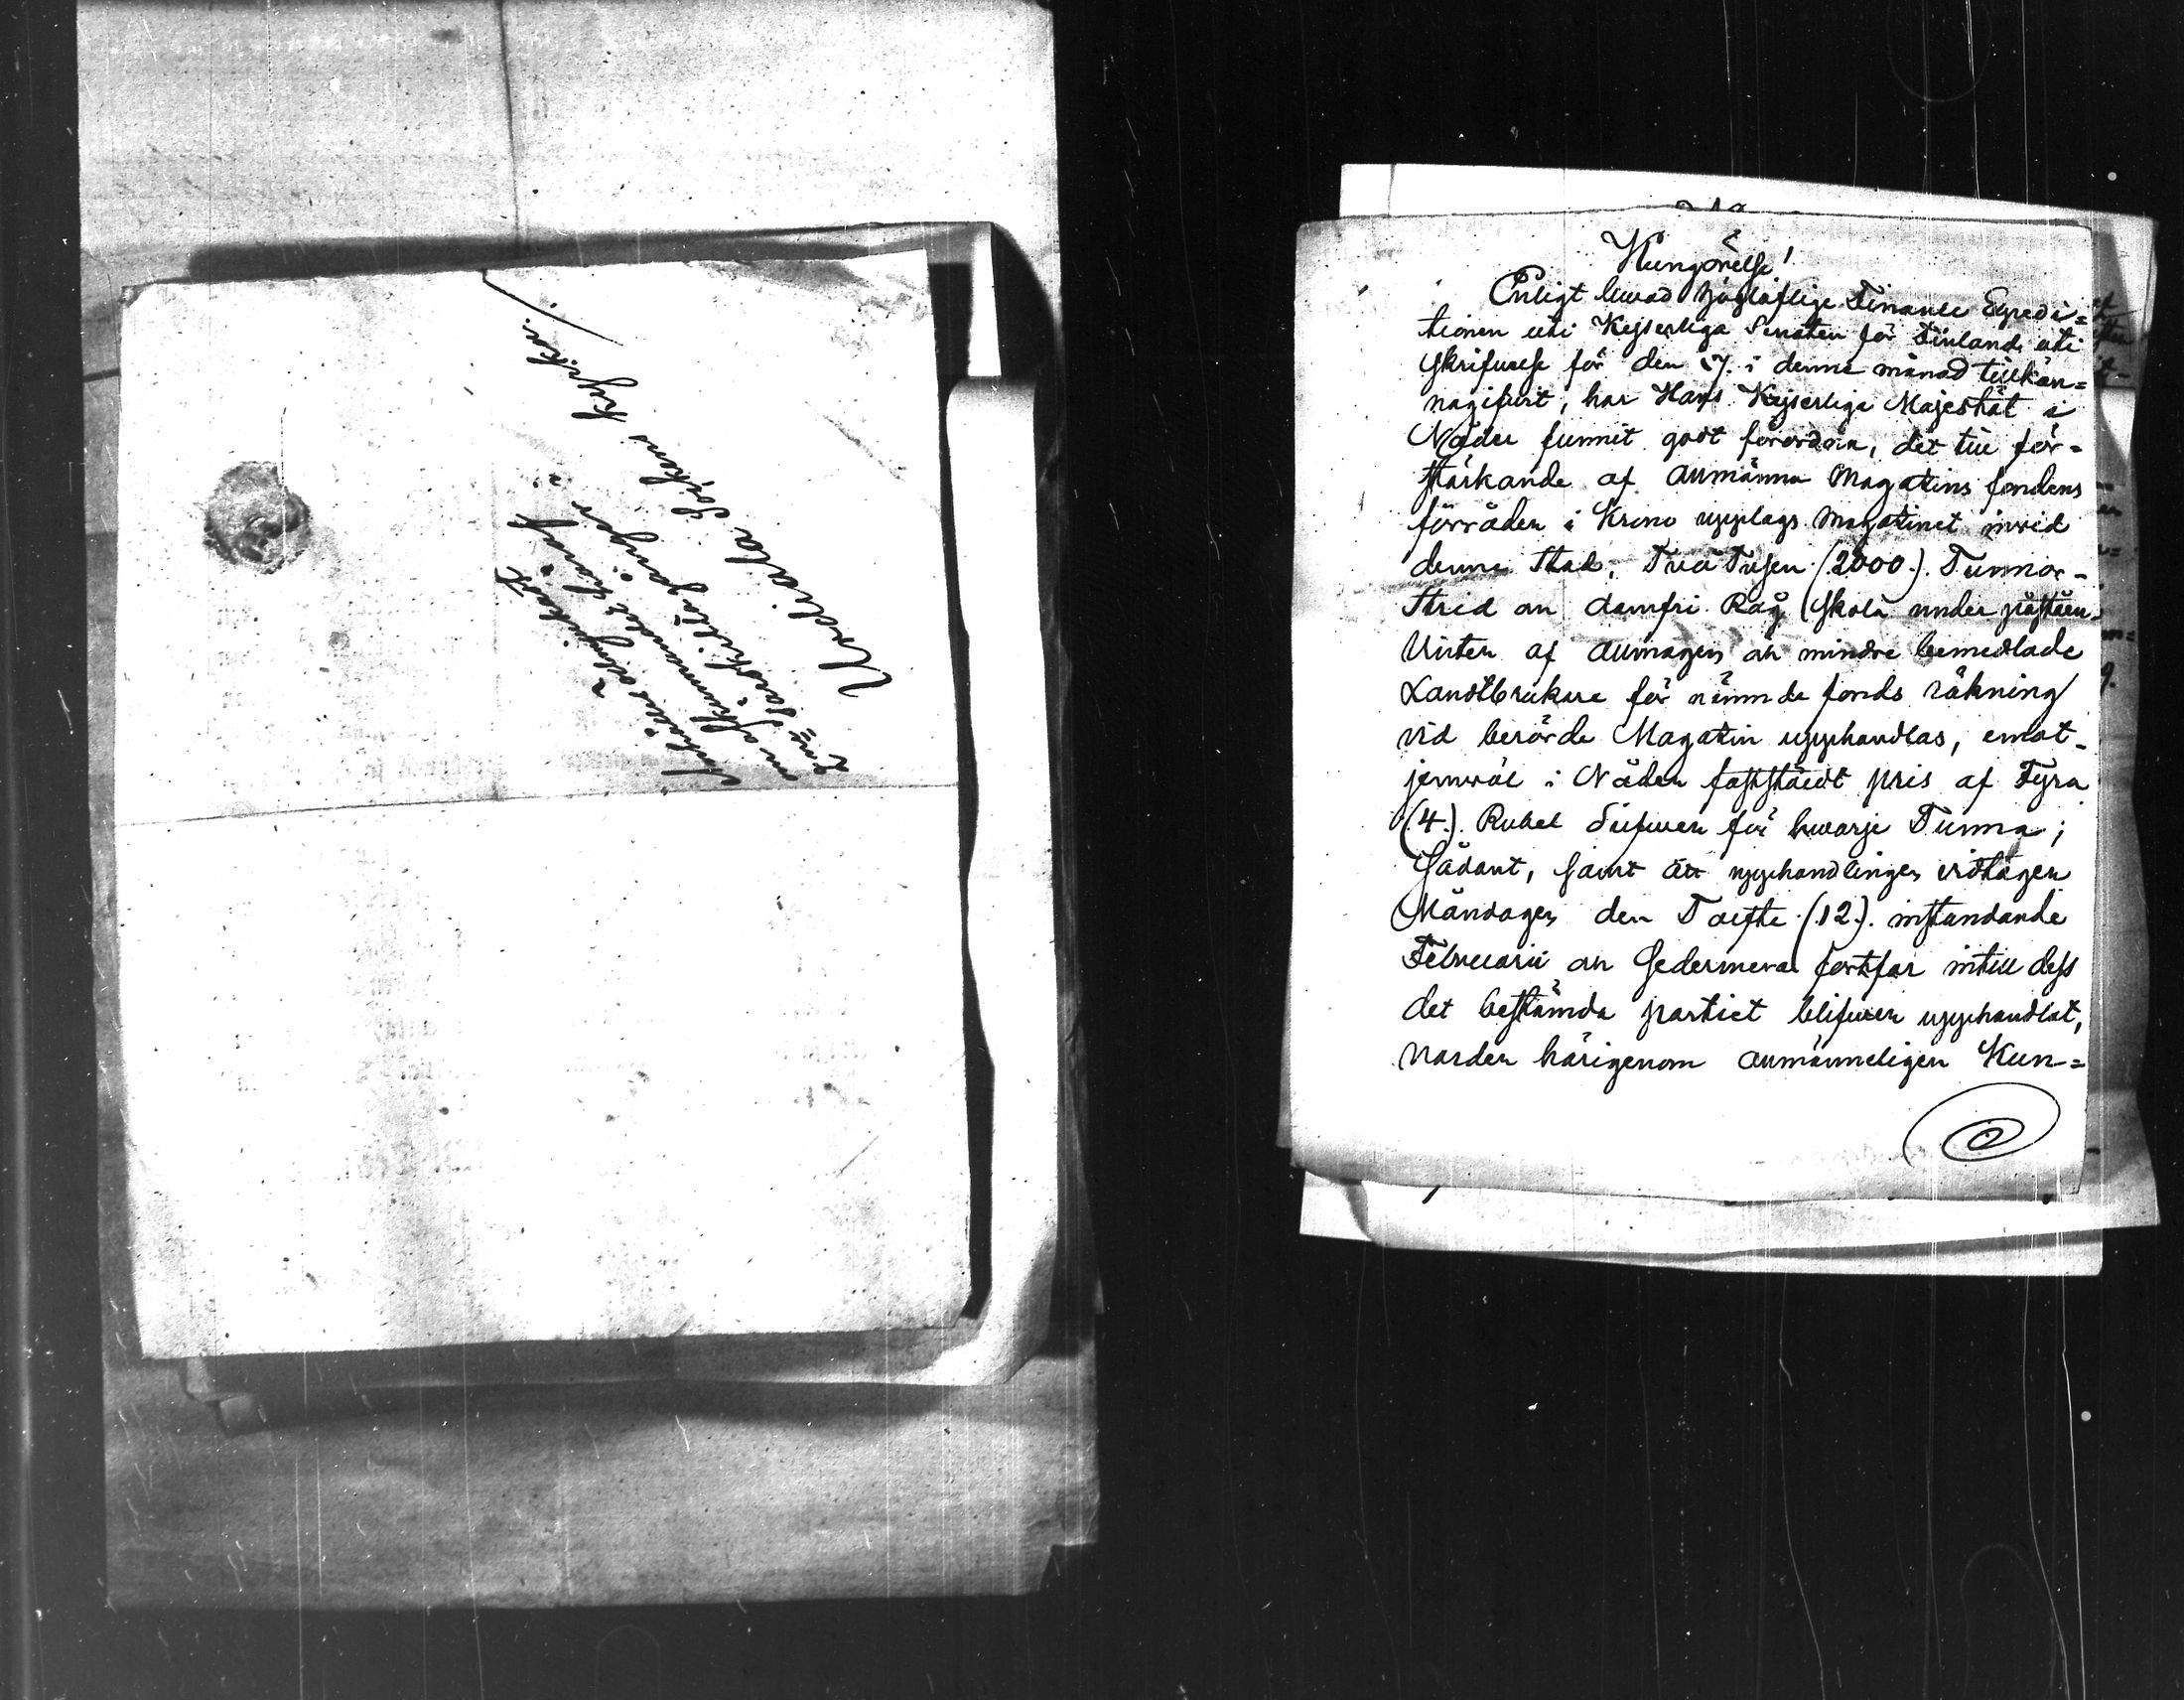 Urdiala Sockens kyrka.
Kungörelse!
Enligt hwad Höglöflige Finance Expedi=
tionen uti Kejserliga Senaten för Finland uti
skrifvelse för den 17. i denne månad tillkän=
nagifvit, har Hans Kejserliga Majestät i
Nåder funnit godt förordna, det till för=
stärkande af allmänna Magatins fondens
förråder i Krono upplags Magatinet invid
denne Stad, Två Tusen (2000.). Tunnor
Strid ock damfri Råg skola under påstående
Vinter af allmogen och mindre bemedlade
Landtbrukare för nämnde fonds räkning
vid berörde Magatin upphandlas, emot
jemväl i Nåder fastställdt pris af Fyra
(4.). Rubel Silfver för hwarje Tunna;
Sådant, samt att upphandlingen vidtager
Måndagen den Tolfte (12.). instundande
Februarii och sedermera fortfar intill dess
det bestämda partiet blifver upphandlat,
varder härigenom allmänneligen Kun=